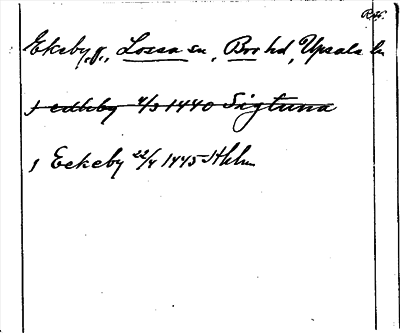 Ekeby, g., Lossa sn, Bro hd, Upsala ln
J edheby 4/3 1440 Sigtuna
J Eekeby 22/4 1445 Sthlm